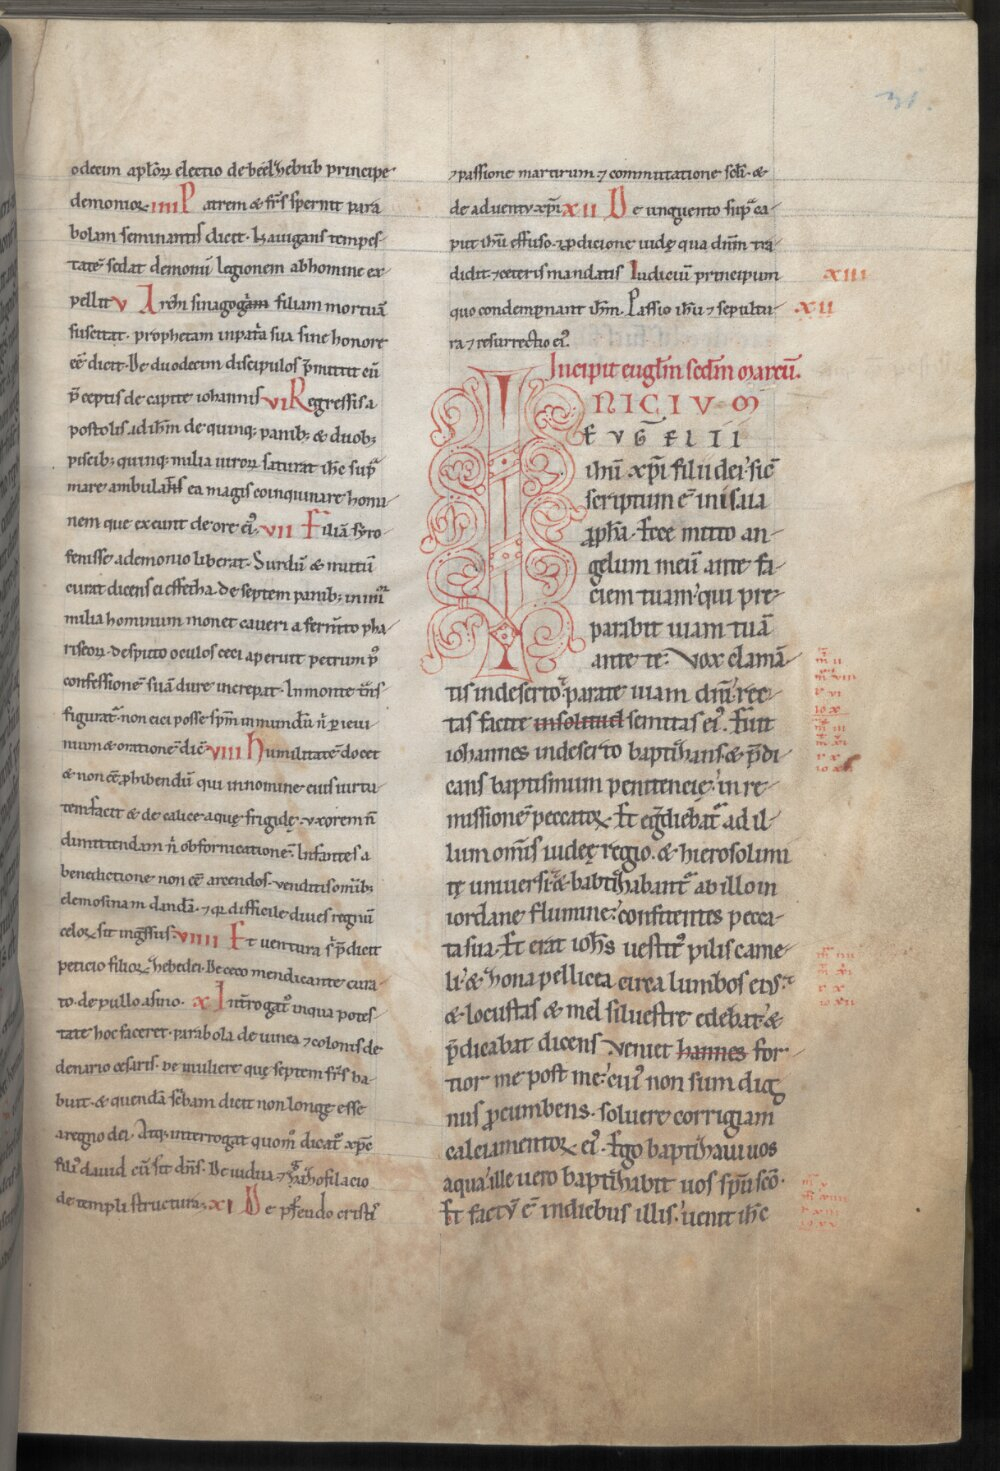 31.
odecim apl'oꝝ electio de beelzhebub principe
demonioꝝ. IIII Patrem & fr̄s spernit parā
bolam seminantis dicit. Nauigans tempes-
tatē sedat demonū legionem ab homine ex-
pellit V Archisinagogam filiam mortuā
suscitat. prophetam in pat̄ia sua sine honore
eē dicit. De duodecim discipulos p̄mittit cū
p̄ceptis de capite iohannis VI Regressis a-
postolis ad ih̄m de quinq; panib; & duob;
piscib; quinq; milia uiroꝝ saturat ih̄c sup̄
mare ambulans ea magis coinquinare homi-
nem que exeunt de ore ei᾿. VII Filiā syro-
fenisse a demonio liberat. Surdū & mutū
curat dicens ei effecha. de septem panib; in IIII
milia hominum monet caueri a fermto pha-
riseoꝝ. despuito oculos ceci aperuit petrum p᾿
confessionē suā dure increpat. In monte t̄ns
figurat̄. non eici posse sp̄m inmundū n̄ p̄ ieiu-
nium & orationē dic̄ VIII Humilitatē docet
& non eē ꝓhibendū qui in nomine eius uirtu-
tem facit & de calice aquę frigidę. uxorem n̄
dimittendam n̄ ob fornicationē. Infantes a
benedictione non eē arcendos. uenditis omib;
elemosinam dandā. ⁊ qr̄ difficile diues regnū
celoꝝ sit ingr̄ssus. VIIII Et uentura s᾿ p̄dicit
peticio filioꝝ zhebedei. De ceco mendicante cura-
to. de pullo asino. X Int̄rogat᾿ in qua potes-
tate hoc faceret. parabola de uinea ⁊ colonis de
denario cesaris. De muliere quę septem fr̄s ha-
buit. & quendā scribam dicit non longe esse
a regno dei. Atq; interrogat quom̄ dicat᾿ xp̄c
fili᾿ dauid cū sit dn̄s. De uidua ⁊ gazhofilacio
de templi structura; XI De pseudo cristis
⁊ passione martirum ⁊ commutatione scl'i. &
de aduentu xp̄i XII De unguento sup̄ ca-
put ih̄u effuso. ꝓdicione iudę qua dn̄m tra-
didit ⁊ ceteris mandatis Iudiciū principum XIII
quo condempnant ih̄m. Passio ih̄u ⁊ sepultu- XII
ra ⁊ resurrectio ei᾿.
Incipit eugl'm scd̄m marcū.
INICIVM
EVGELII
ih̄u xp̄i filii dei. sic̄
scriptum ē in isaia
ꝓph̄a. Ecce mitto an-
gelum meū ante fa-
ciem tuam. qui pre-
parabit uiam tuā
ante te. Vox clamā-
tis in deserto. parate uiam dn̄i rec-
tas facite insolitud semitas ei᾿. Fuit
iohannes in deserto baptizhans & p̄di
cans baptismum penitencię. in re-
missionē peccatoꝝ. Et egr̄diebat᾿ ad il-
lum om̄is iudeę regio. & hierosolimi
tę uniuersi. & babtizhabant᾿ ab illo in
iordane flumine. confitentes pecca-
ta sua. Et erat ioh̄s uestit᾿ pilis came-
li. & zhona pellicea circa lumbos eius.
& locustas & mel siluestre edebat. &
p̄dicabat dicens. Veniet hannes for-
tior me post me. cui᾿ non sum dig
nus ꝓcumbens. soluere corrigiam
calciamentoꝝ ei᾿. Ego baptizhaui uos
aqua. ille uero baptizhabit uos sp̄u sc̄o.
Et factū ē in diebus illis. uenit ih̄c